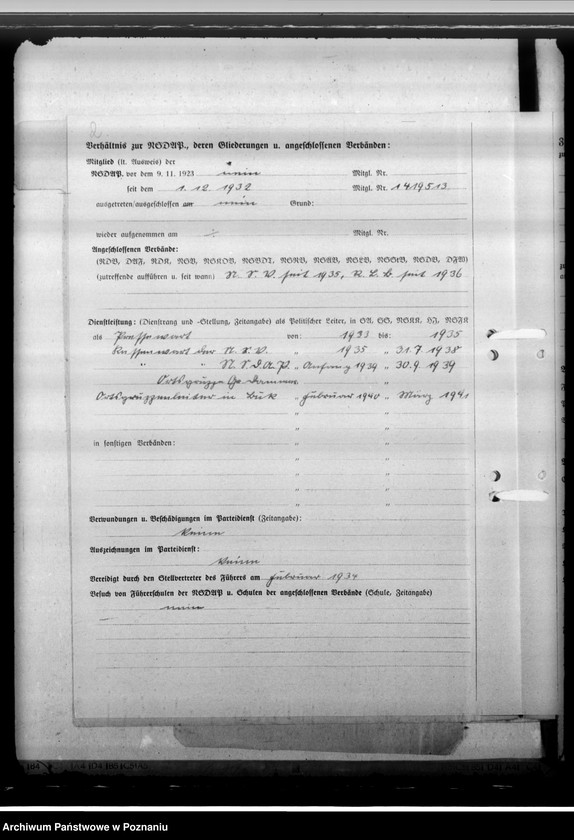 Verhältnis zur NSDAP., deren Gliederungen u. angeschlossenen Verbänden:
Mitglied (lt. Ausweis) der
NSDAP. vor dem 9. 11. 1923 nein Mitgl. Nr.
seit dem 1. 12. 1932 Mitgl. Nr. 1419513.
ausgetreten/ausgeschlossen am nein Grund:
wieder aufgenommen am Mitgl. Nr.
Angeschlossenen Verbände:
(RDB, DAF, RDK, NSV, NSKOV, NSBDT, NSRB, NSÄB, NSLB, NSDStB, NSDB, DFW)
(zutreffende aufführen u. seit wann) N. S. V. seit 1935, R. L. B. seit 1936
Dienstleistung: (Dienstrang und -Stellung, Zeitangabe) als Politischer Leiter, in SA, SS, NSKK, HJ, NSFK
als Pressewart von: 1933 bis: 1935
Kassenwart der N. S. V. „ 1935 „ 31. 7. 1938
„ „ N. S. D. A. P. „ Anfang 1939 „ 30. 9. 1939
Ortsgruppe „ „
Ortsgruppenleiter in Buk „ Februar 1940 „ März 1941
„ „
„ „
in sonstigen Verbänden: „ „
„ „
„ „
„ „
„ „
Verwundungen u. Beschädigungen im Parteidienst (Zeitangabe):
Keine
Auszeichnungen im Parteidienst:
Keine
Vereidigt durch den Stellvertreter des Führers am Februar 1934
Besuch von Führerschulen der NSDAP u. Schulen der angeschlossenen Verbände (Schule, Zeitangabe)
nein
Archiwum Państwowe w Poznaniu